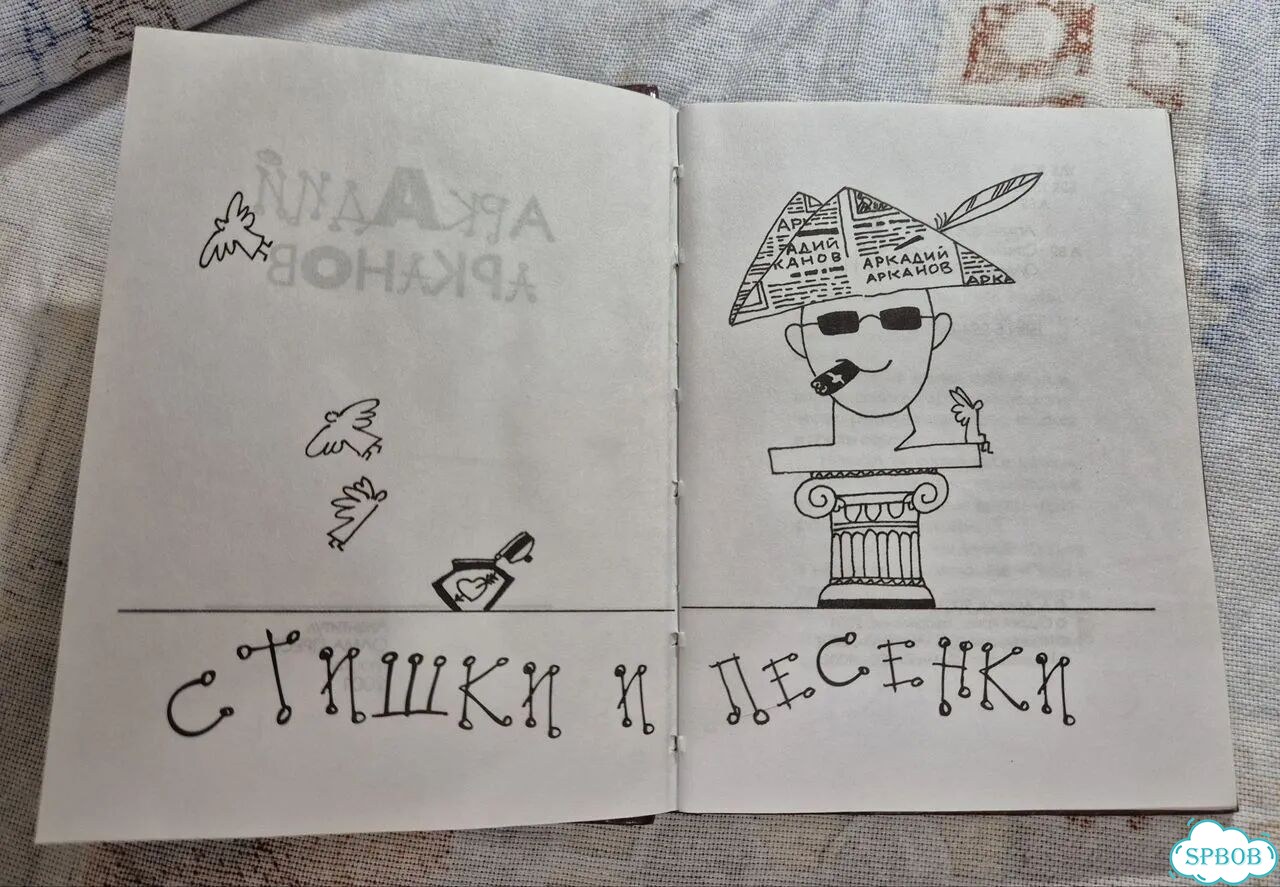 АРКАДИЙ
АРКАНОВ
АДИЙ
КАНОВ
АРКАДИЙ
АРКАНОВ
АРКА
СТИШКИ И ПЕСЕНКИ
SPBOB